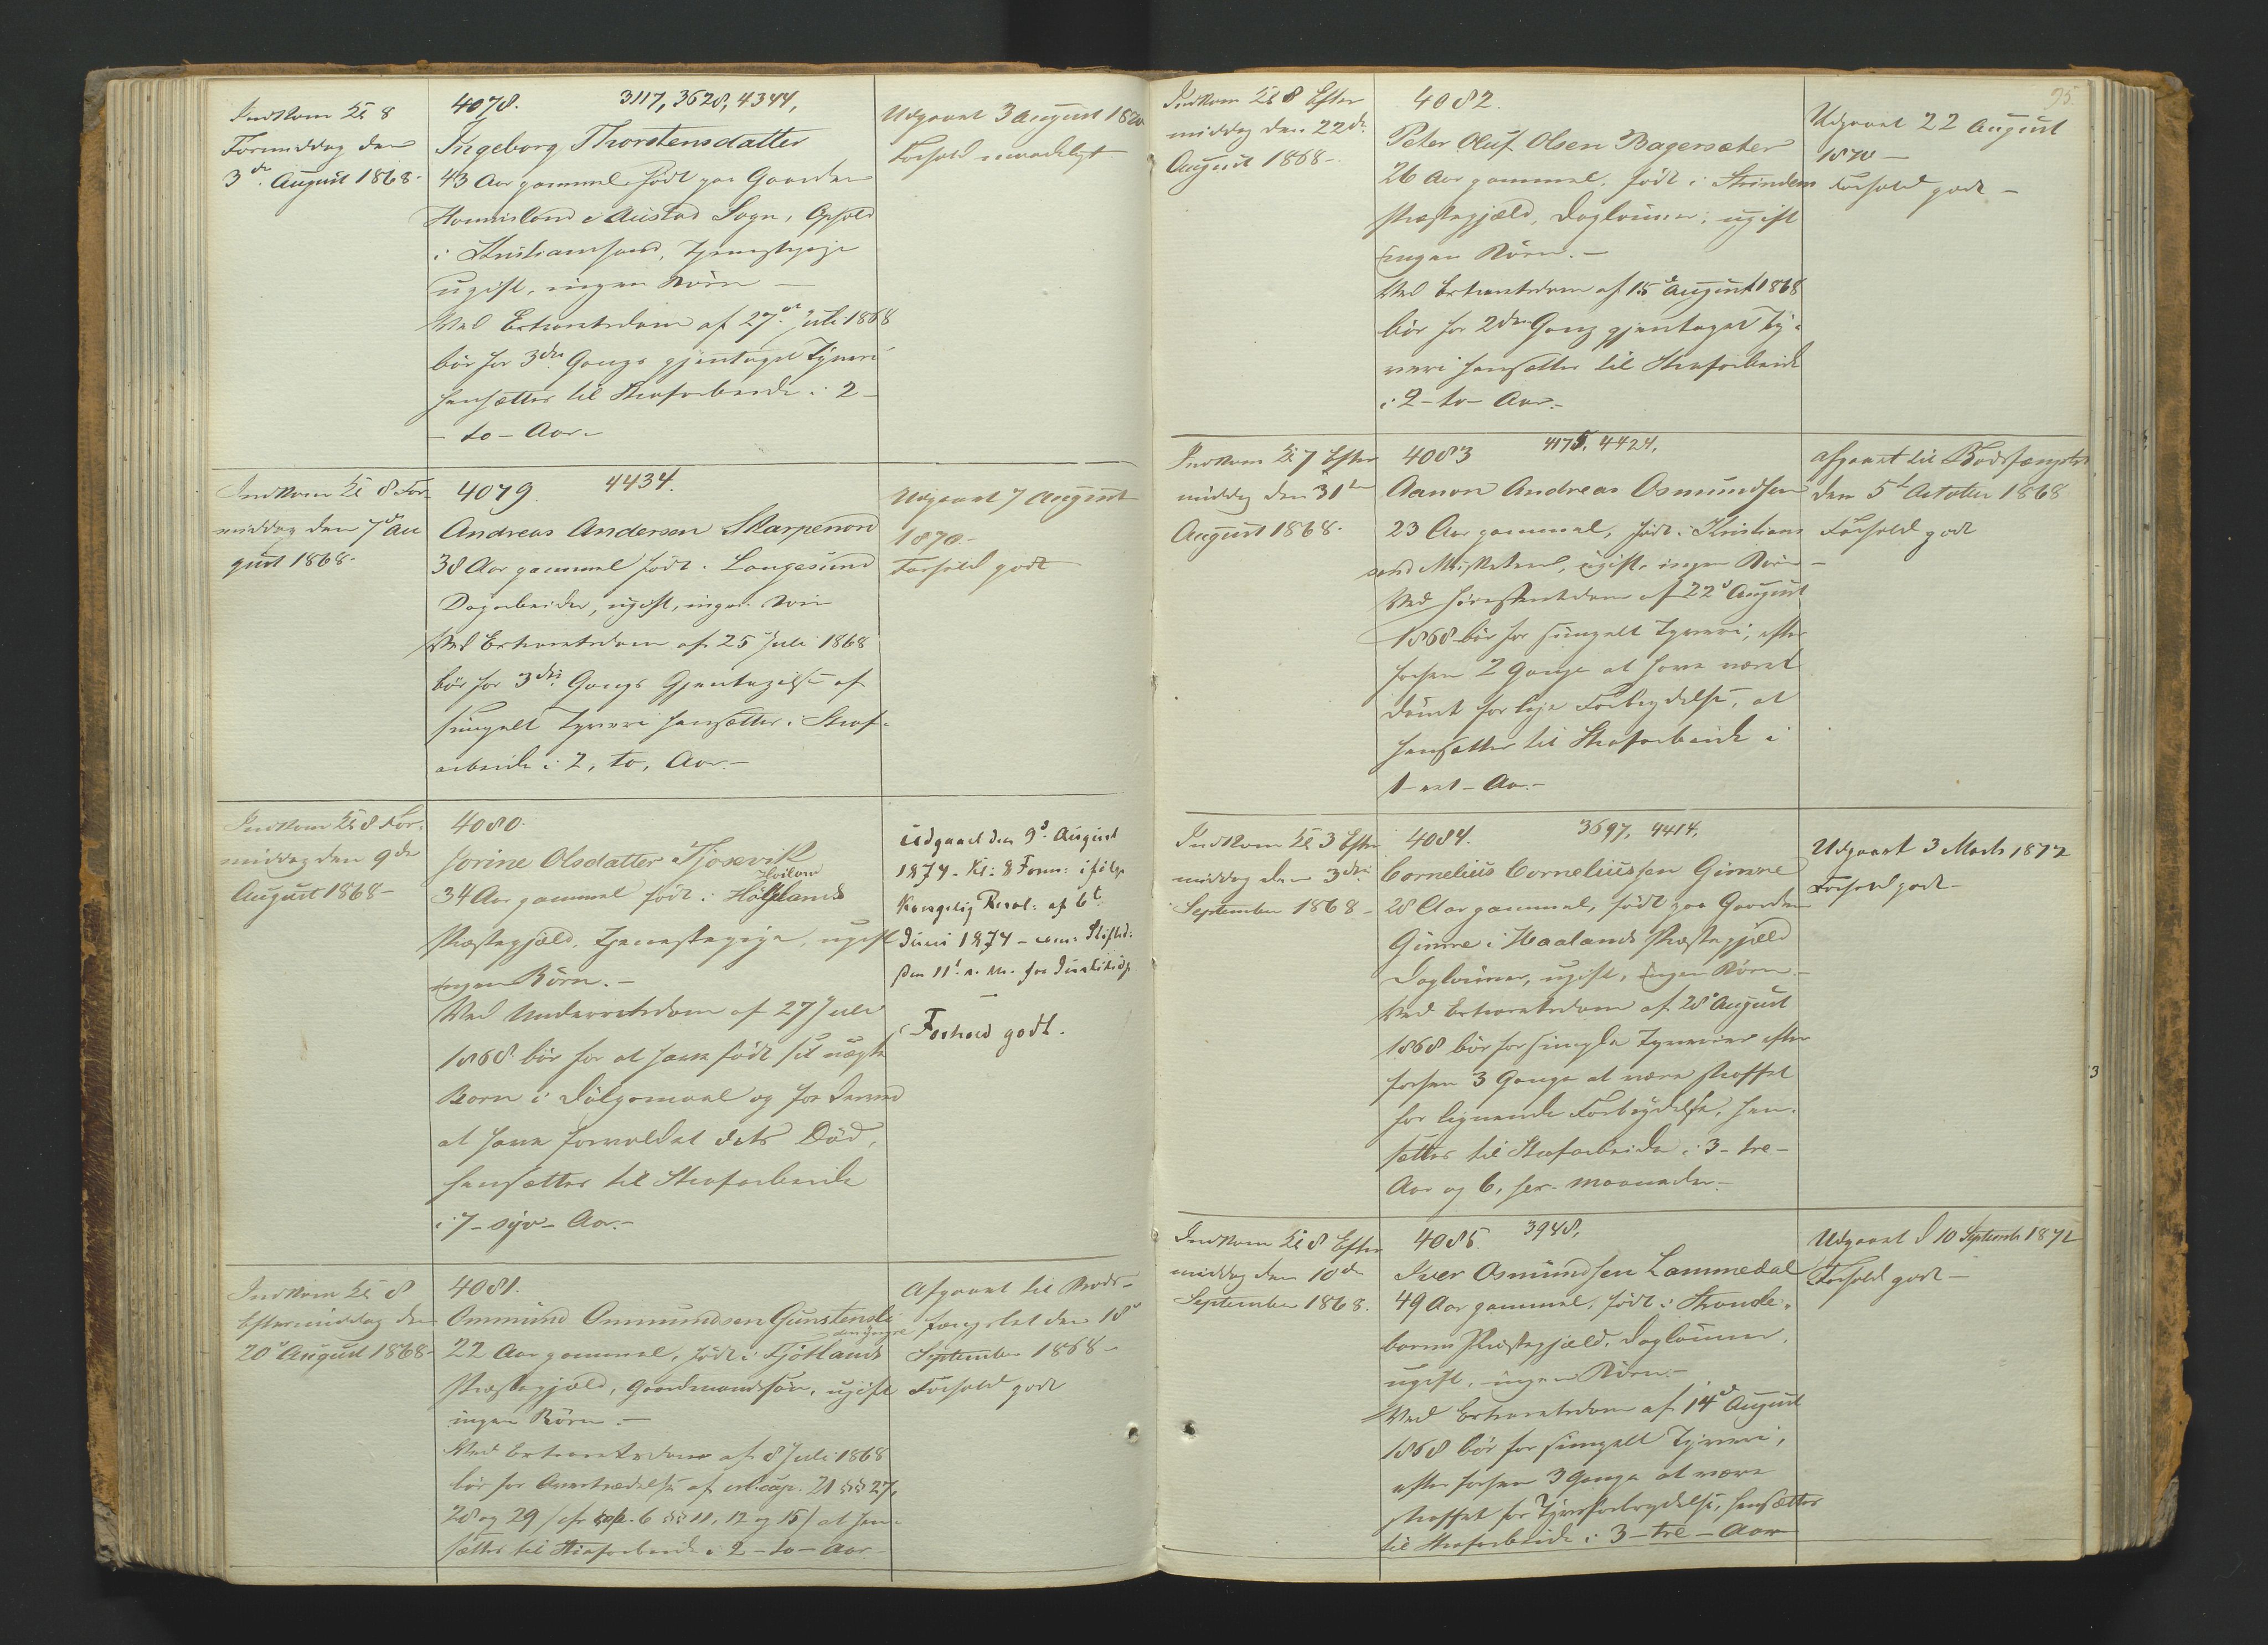 Indkom Kl 8
Formiddag den
3die August 1868.
4078. 3117, 3628, 4344,
Ingeborg Thorstensdatter
43 Aar gammel, født paa Gaarden
i Austad Sogn, Ophold
i Kristianssand, Tjenestepige
ugift, ingen Børn
Ved Extraretsdom af 27de Juli 1868
bør for 3die Gangs gjentaget Tyveri
hensættes til Strafarbeide i 2
- to - Aar.-
Udgaaet 3 August 1870
Forhold maadeligt
Indkom Kl 8 For-
middag den 7de Au
gust 1868-
4079. 4434.
Andreas Andersen Skarpenord
38 Aar gammel født i Langesund
Dagarbeider, ugift, ingen Børn
Ved Extraretsdom af 25 Juli 1868
bør for 3die Gangs Gjentagelse af
simpelt Tyveri hensættes i Straf-
arbeide i 2, to, Aar.-
Udgaaet 7 August
1870.-
Forhold godt
Indkom Kl 8 For-
middag den 9de
August 1868-
4080.
Jorine Olsdatter Tjosevik
34 Aar gammel født i Høilands
Præstegjæld, Tjenestepige, ugift
ingen Børn.-
Ved Underretsdom af 27 Juli
1868 bør for at have født sit uægte
Barn i Dølgsmaal og for derved
at have forvoldet dets Død,
hensættes til Strafarbeide
i 7 - syv - Aar.-
Udgaaet den 9de August
1874 - Kl: 8 Form: ifølge
Kongelig Resol: af 6t
Juni 1874 - Stiftsd:
den 11t s. M. fra Justitsdp
Forhold godt.
Indkom Kl 8
Eftermiddag den
20de August 1868-
4081.
Ommund Ommundsen Gunstensli
den yngre
22 Aar gammel, født i Fjotlands
Præstegjæld, Gaardmandssøn, ugift
ingen Børn.-
Ved Extraretsdom af 8 Juli 1868
bør for Overtrædelse af crl: cap. 21 §§ 27,
28 og 29 (cfr cap. 6 §§ 11, 12 og 15) at hen-
sættes til Strafarbeide i 2 - to - Aar-
Afgaaet til Bods-
fængslet den 18de
September 1868-
Forhold godt
95.
Indkom Kl 8 Efter
middag den 22de
August 1868-
4082.
Peter Oluf Olsen Bagersæter
26 Aar gammel, født i Strindens
Præstegjæld, Daglønner, ugift
ingen Børn.-
Ved Extraretsdom af 15de August 1868
bør for 2den Gang gjentaget Ty-
veri hensættes til Strafarbeide
i 2 - to - Aar.-
Udgaaet 22 August
1870 -
Forhold godt -
Indkom Kl 7 Efter
middag den 31te
August 1868.
4083 4175, 4424,
Aanon Andreas Osmundsen
23 Aar gammel, født i Kristians
sand ugift, ingen Børn -
Ved Forhørsretsdom af 22de August
1868 bør for simpelt Tyveri, efter
forhen 2 Gange at have været
dømt for lige Forbrydelse, at
hensættes til Strafarbeide i
1 - et - Aar.-
Afgaaet til Bodsfængslet
den 5te October 1868
Forhold godt
Indkom Kl 3 Efter
middag den 3die
September 1868-
4084. 3697, 4414,
Cornelius Corneliussen Gimre
28 Aar gammel, født paa Gaarden
Gimre i Haalands Præstegjæld
Daglønner, ugift, ingen Børn.-
Ved Extraretsdom af 28de August
1868 bør for simple Tyverier efter
forhen 3 Gange at være straffet
for lignende Forbrydelse, hen-
sættes til Strafarbeide i 3 - tre -
Aar og 6, sex Maaneder.-
Udgaaet 3 Marts 1872
Forhold godt -
Indkom Kl 8 Efter
middag den 10de
September 1868.
4085. 3948,
Iver Osmundsen Lammedal
49 Aar gammel, født i Strande-
barms Præstegjæld, Daglønner,
ugift, ingen Børn.-
Ved Extraretsdom af 14de August
1868 bør for simpelt Tyveri,
efter forhen 3 Gange at være
straffet for Tyvsforbrydelse, hensættes
til Strafarbeide i 3 - tre - Aar
Udgaaet d 10 September 1871
Forhold godt -